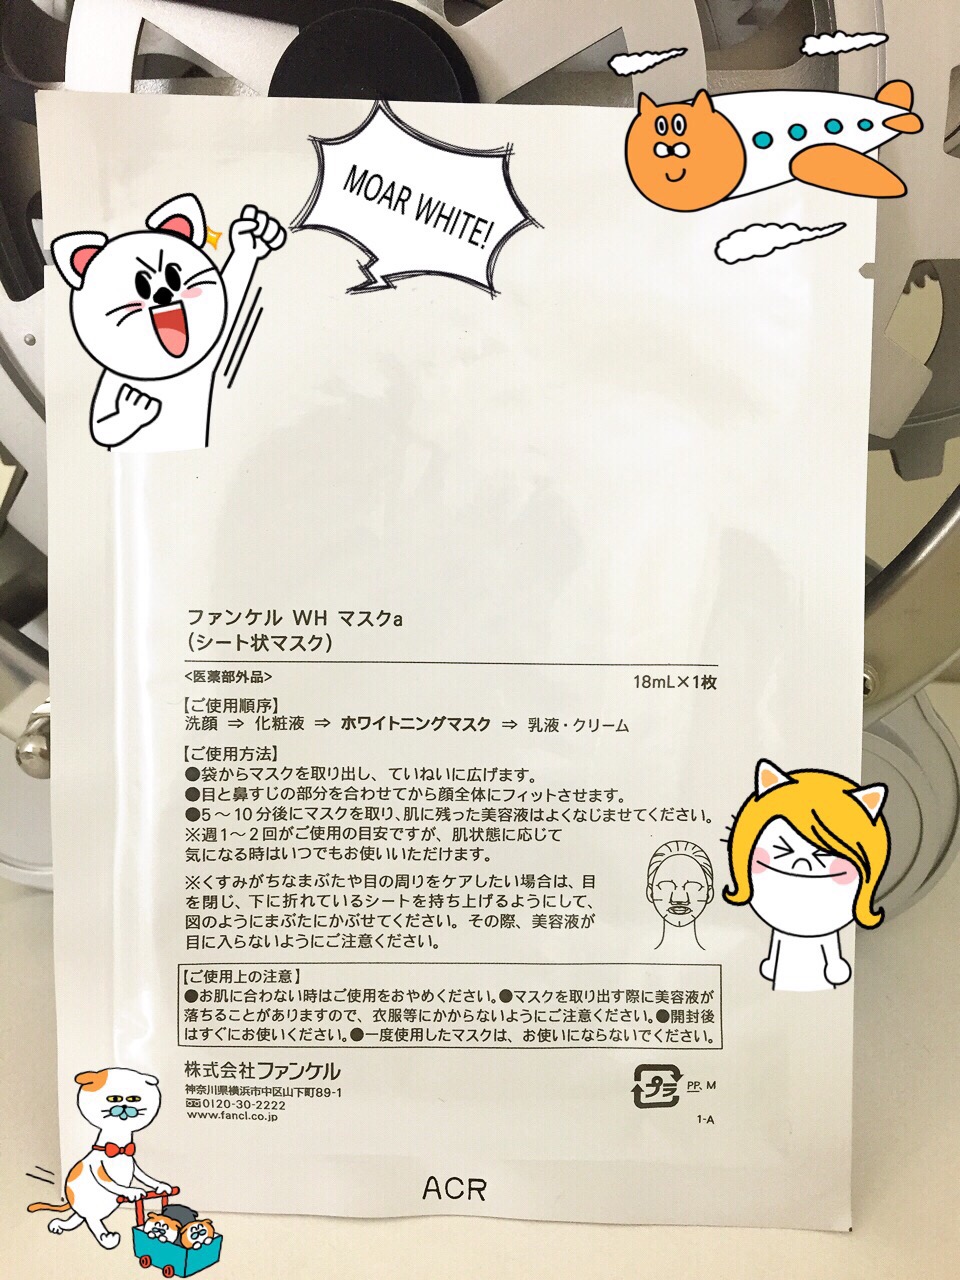 MOAR WHITE!
ファンケル WH マスクa
(シート状マスク)
<医薬部外品>
18mL×1枚
【ご使用順序】
洗顔 ⇒ 化粧液 ⇒ ホワイトニングマスク ⇒ 乳液・クリーム
【ご使用方法】
●袋からマスクを取り出し、ていねいに広げます。
●目と鼻すじの部分を合わせてから顔全体にフィットさせます。
●5〜10分後にマスクを取り、肌に残った美容液はよくなじませてください。
※週1〜2回がご使用の目安ですが、肌状態に応じて
気になる時はいつでもお使いいただけます。
※くすみがちなまぶたや目の周りをケアしたい場合は、目
を閉じ、下に折れているシートを持ち上げるようにして、
図のようにまぶたにかぶせてください。その際、美容液が
目に入らないようにご注意ください。
【ご使用上の注意】
●お肌に合わない時はご使用をおやめください。●マスクを取り出す際に美容液が
落ちることがありますので、衣服等にかからないようにご注意ください。●開封後
はすぐにお使いください。●一度使用したマスクは、お使いにならないでください。
株式会社ファンケル
神奈川県横浜市中区山下町89-1
0120-30-2222
www.fancl.co.jp
プラ
PP, M
1-A
ACR